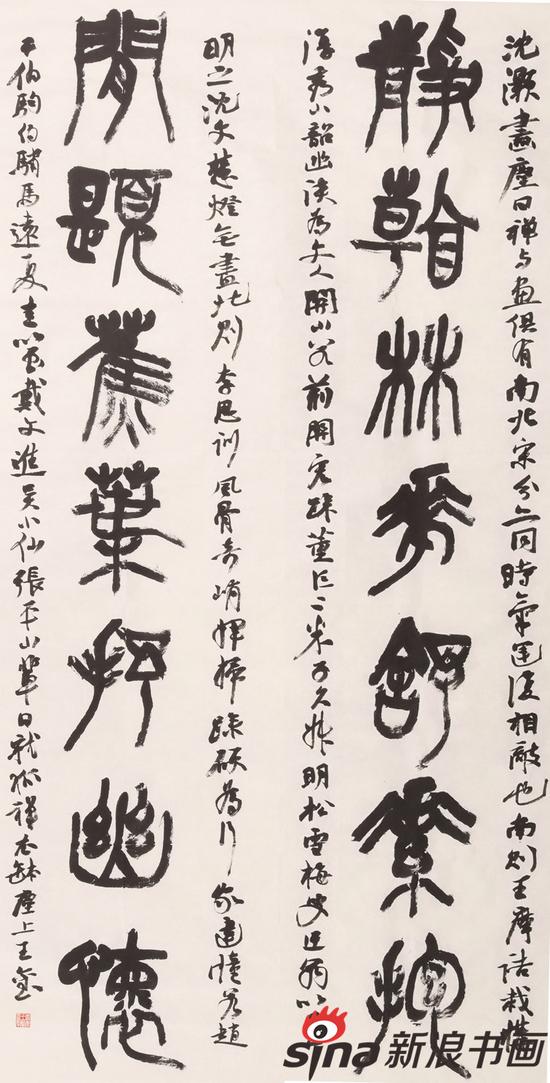 沈灝畫麈曰禅与畫俱有南北宗分亦同時氣運復相敵也南則王摩詰裁構
靜 林 舒素抱
淳秀出韶幽淡為文人開山若荊關宏璪董巨二米子久叔明松雪梅叟迂翁以
明之沈文慧燈無盡北則李思訓風骨奇峭揮掃躁硬為行家建幢若趙
閒題蕉葉抒幽懷
干伯駒伯驌馬遠夏圭以至戴文進吳小仙張平山輩日就狐禅衣缽塵土王
sina新浪书画